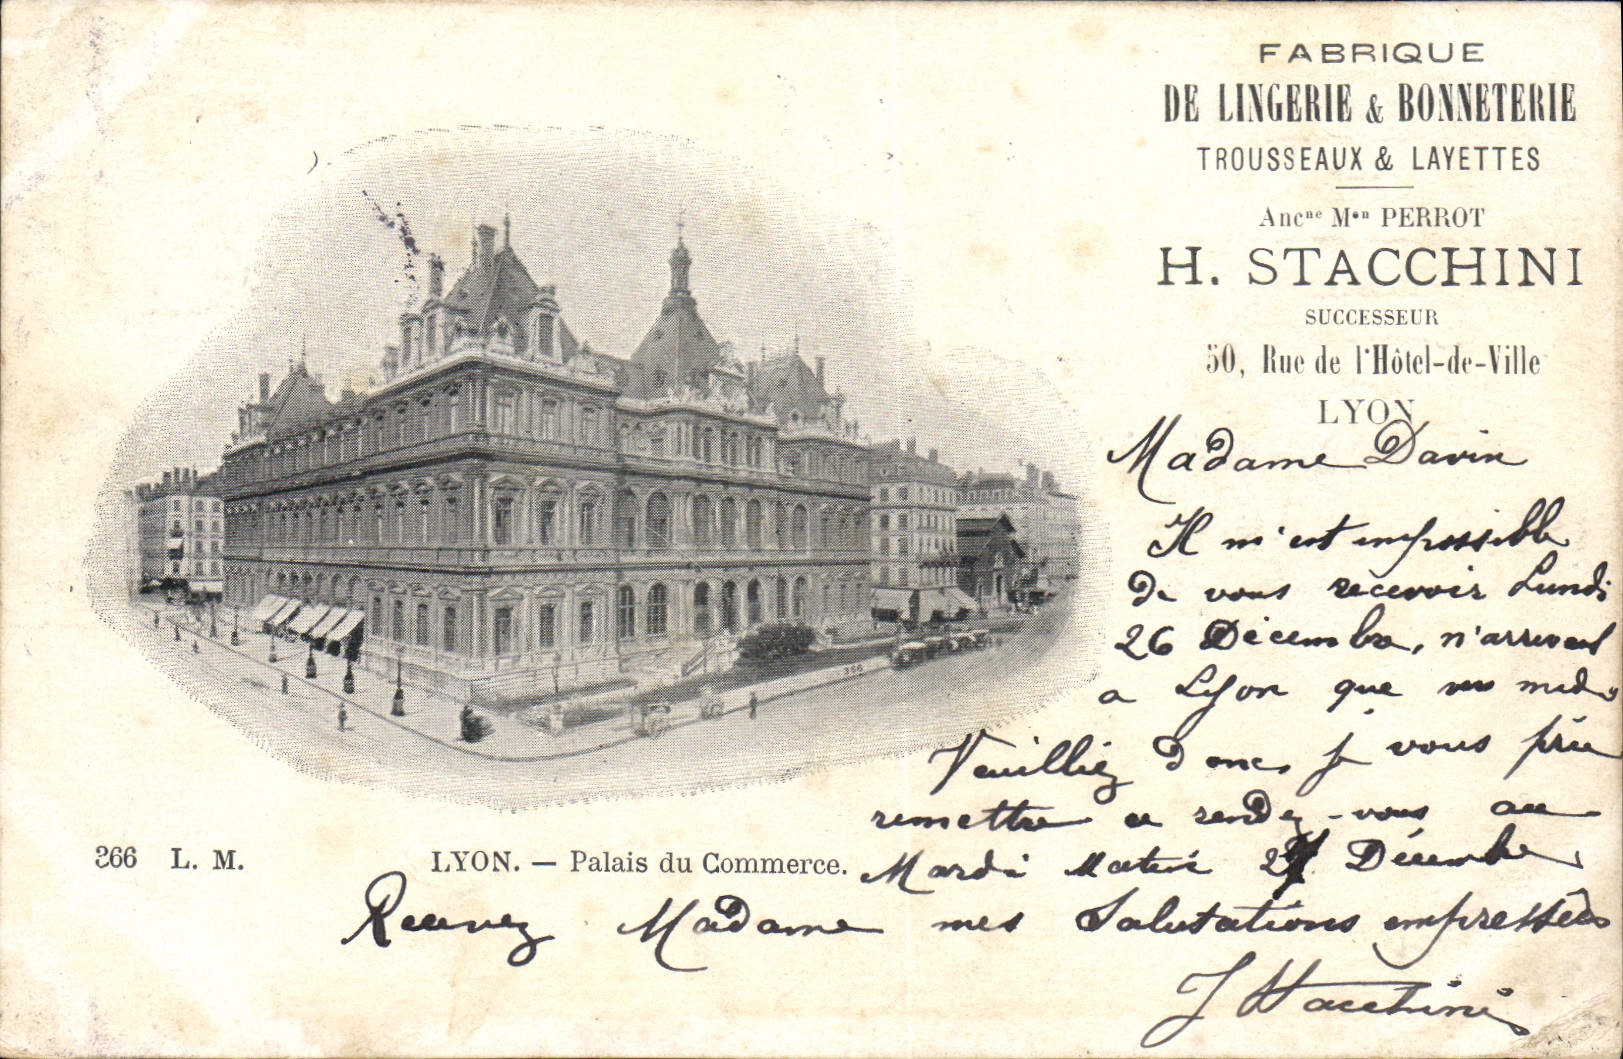 FABRIQUE
DE LINGERIE & BONNETERIE
TROUSSEAUX & LAYETTES
Ancne Mon PERROT
H. STACCHINI
SUCCESSEUR
50, Rue de l'Hôtel-de-Ville
LYON
Madame Davin
Il m'est impossible
de vous recevoir Lundi
26 Décembre, n'arrivant
a Lyon que vers midi
Veuillez donc, je vous prie
remettre ce rendez-vous au
Mardi Matin 27 Décembre
Recevez Madame mes Salutations empressées
Stacchini
366
366 L. M.
LYON. — Palais du Commerce.